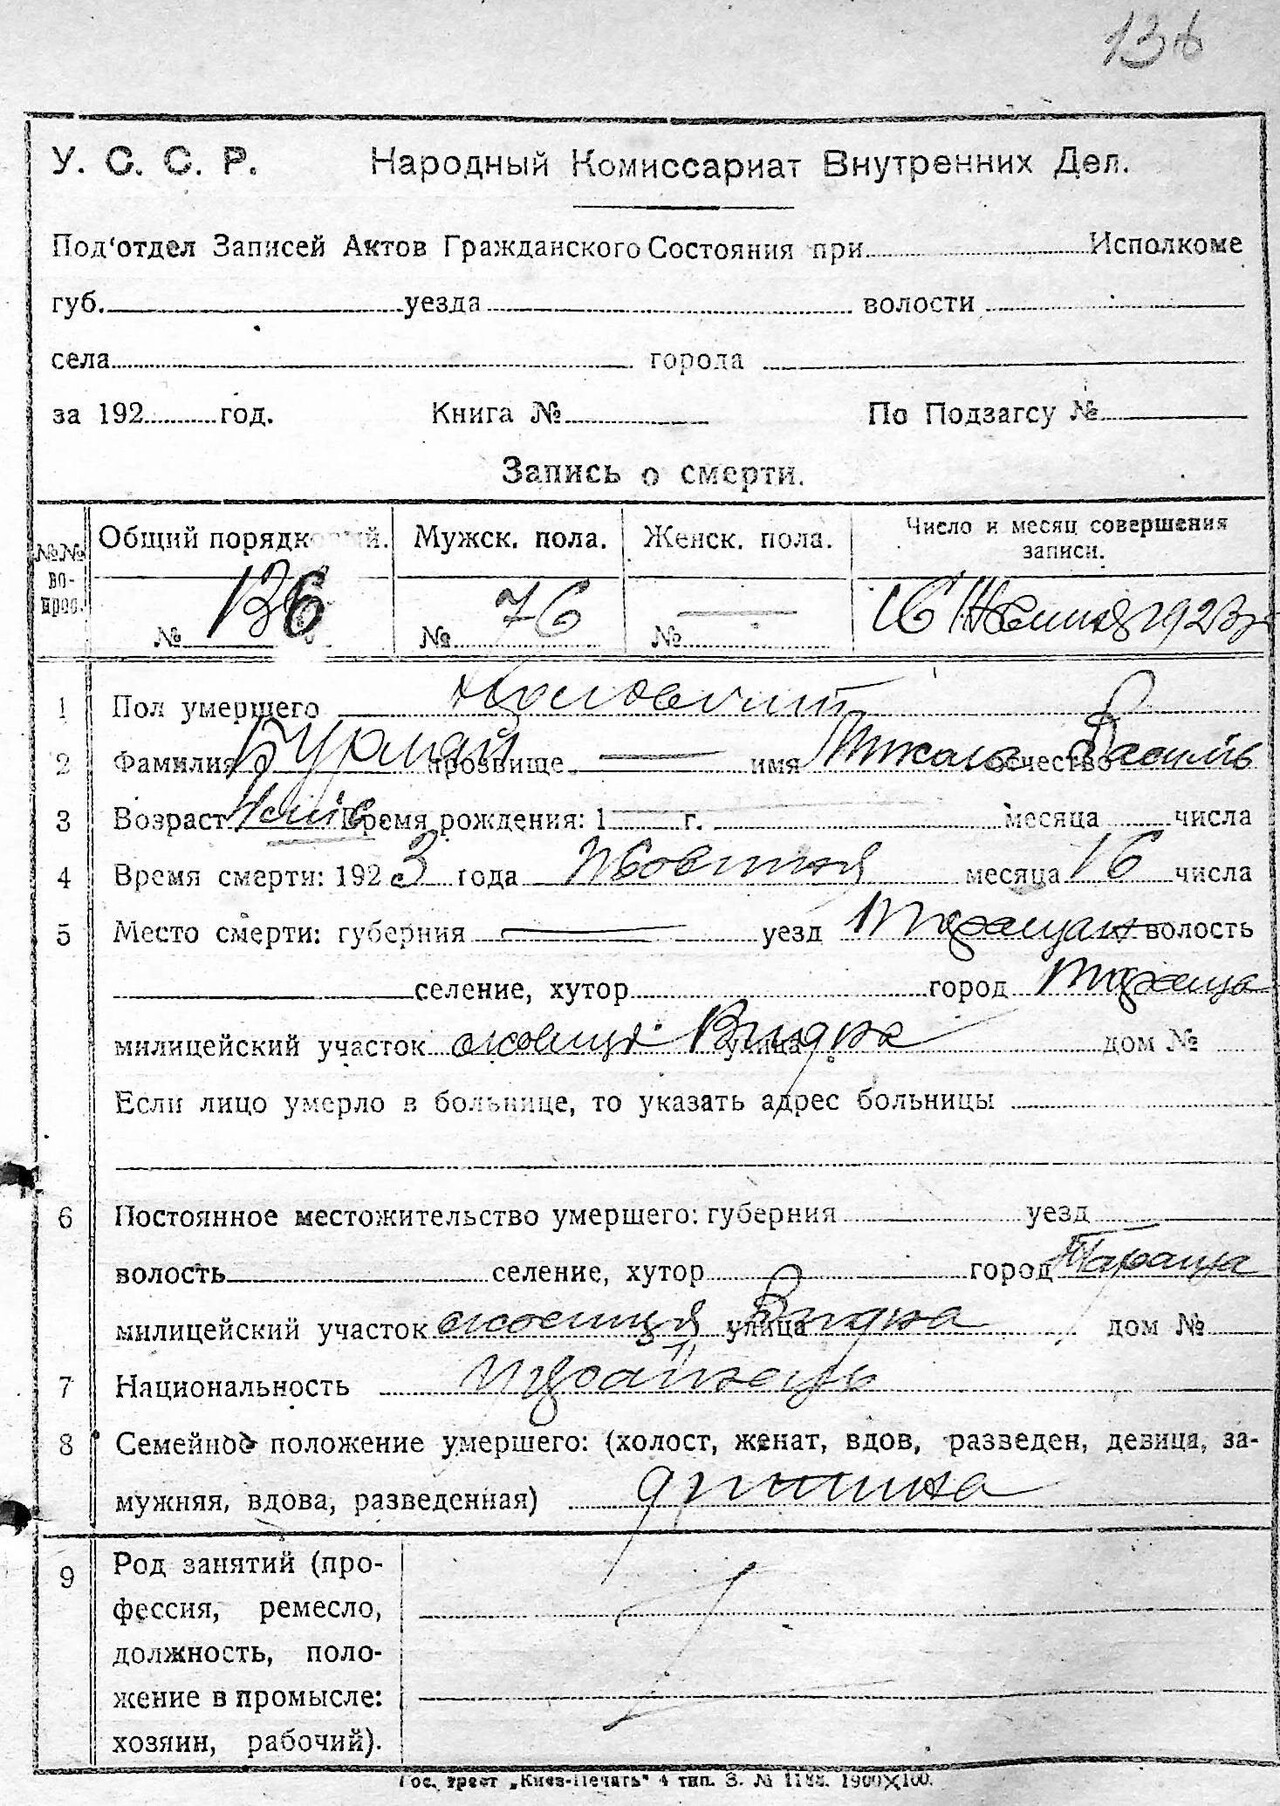 136
У. С. С. Р. Народный Комиссариат Внутренних Дел.
Под'отдел Записей Актов Гражданского Состояния при Исполкоме
губ. уезда волости
села города
за 192 год. Книга № По Подзагсу №
Запись о смерти.
№№ вопрос. Общий порядковый. Мужск. пола. Женск. пола. Число и месяц совершения записи.
№ 136 № 76 № — 16 Жовтня 1923 р
1 Пол умершего Чоловічий
2 Фамилия Бурлай прозвище — имя Микола отчество Василь
3 Возраст Время рождения: 1 г. месяца числа
4 Время смерти: 1923 года Жовтня месяца 16 числа
5 Место смерти: губерния — уезд Таращан волость
селение, хутор город Тараща
милицейский участок околиця улица дом №
Если лицо умерло в больнице, то указать адрес больницы
6 Постоянное местожительство умершего: губерния уезд
волость селение, хутор город Тараща
милицейский участок околиця улица дом №
7 Национальность Українець
8 Семейное положение умершего: (холост, женат, вдов, разведен, девица, за-
мужняя, вдова, разведенная) дитина
9 Род занятий (про-
фессия, ремесло,
должность, поло-
жение в промысле:
хозяин, рабочий).
Гос. трест „Киев-Печать" 4 тип. З. № 1900×100.